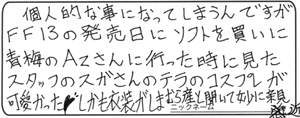 個人的な事になってしまうんですが
FF13の発売日にソフトを買いに
青梅のAZさんに行った時に見た
スタッフのスガさんのテラのコスプレが
可愛かった しかも衣装がしまむら産と聞いて妙に親近
ニックネーム